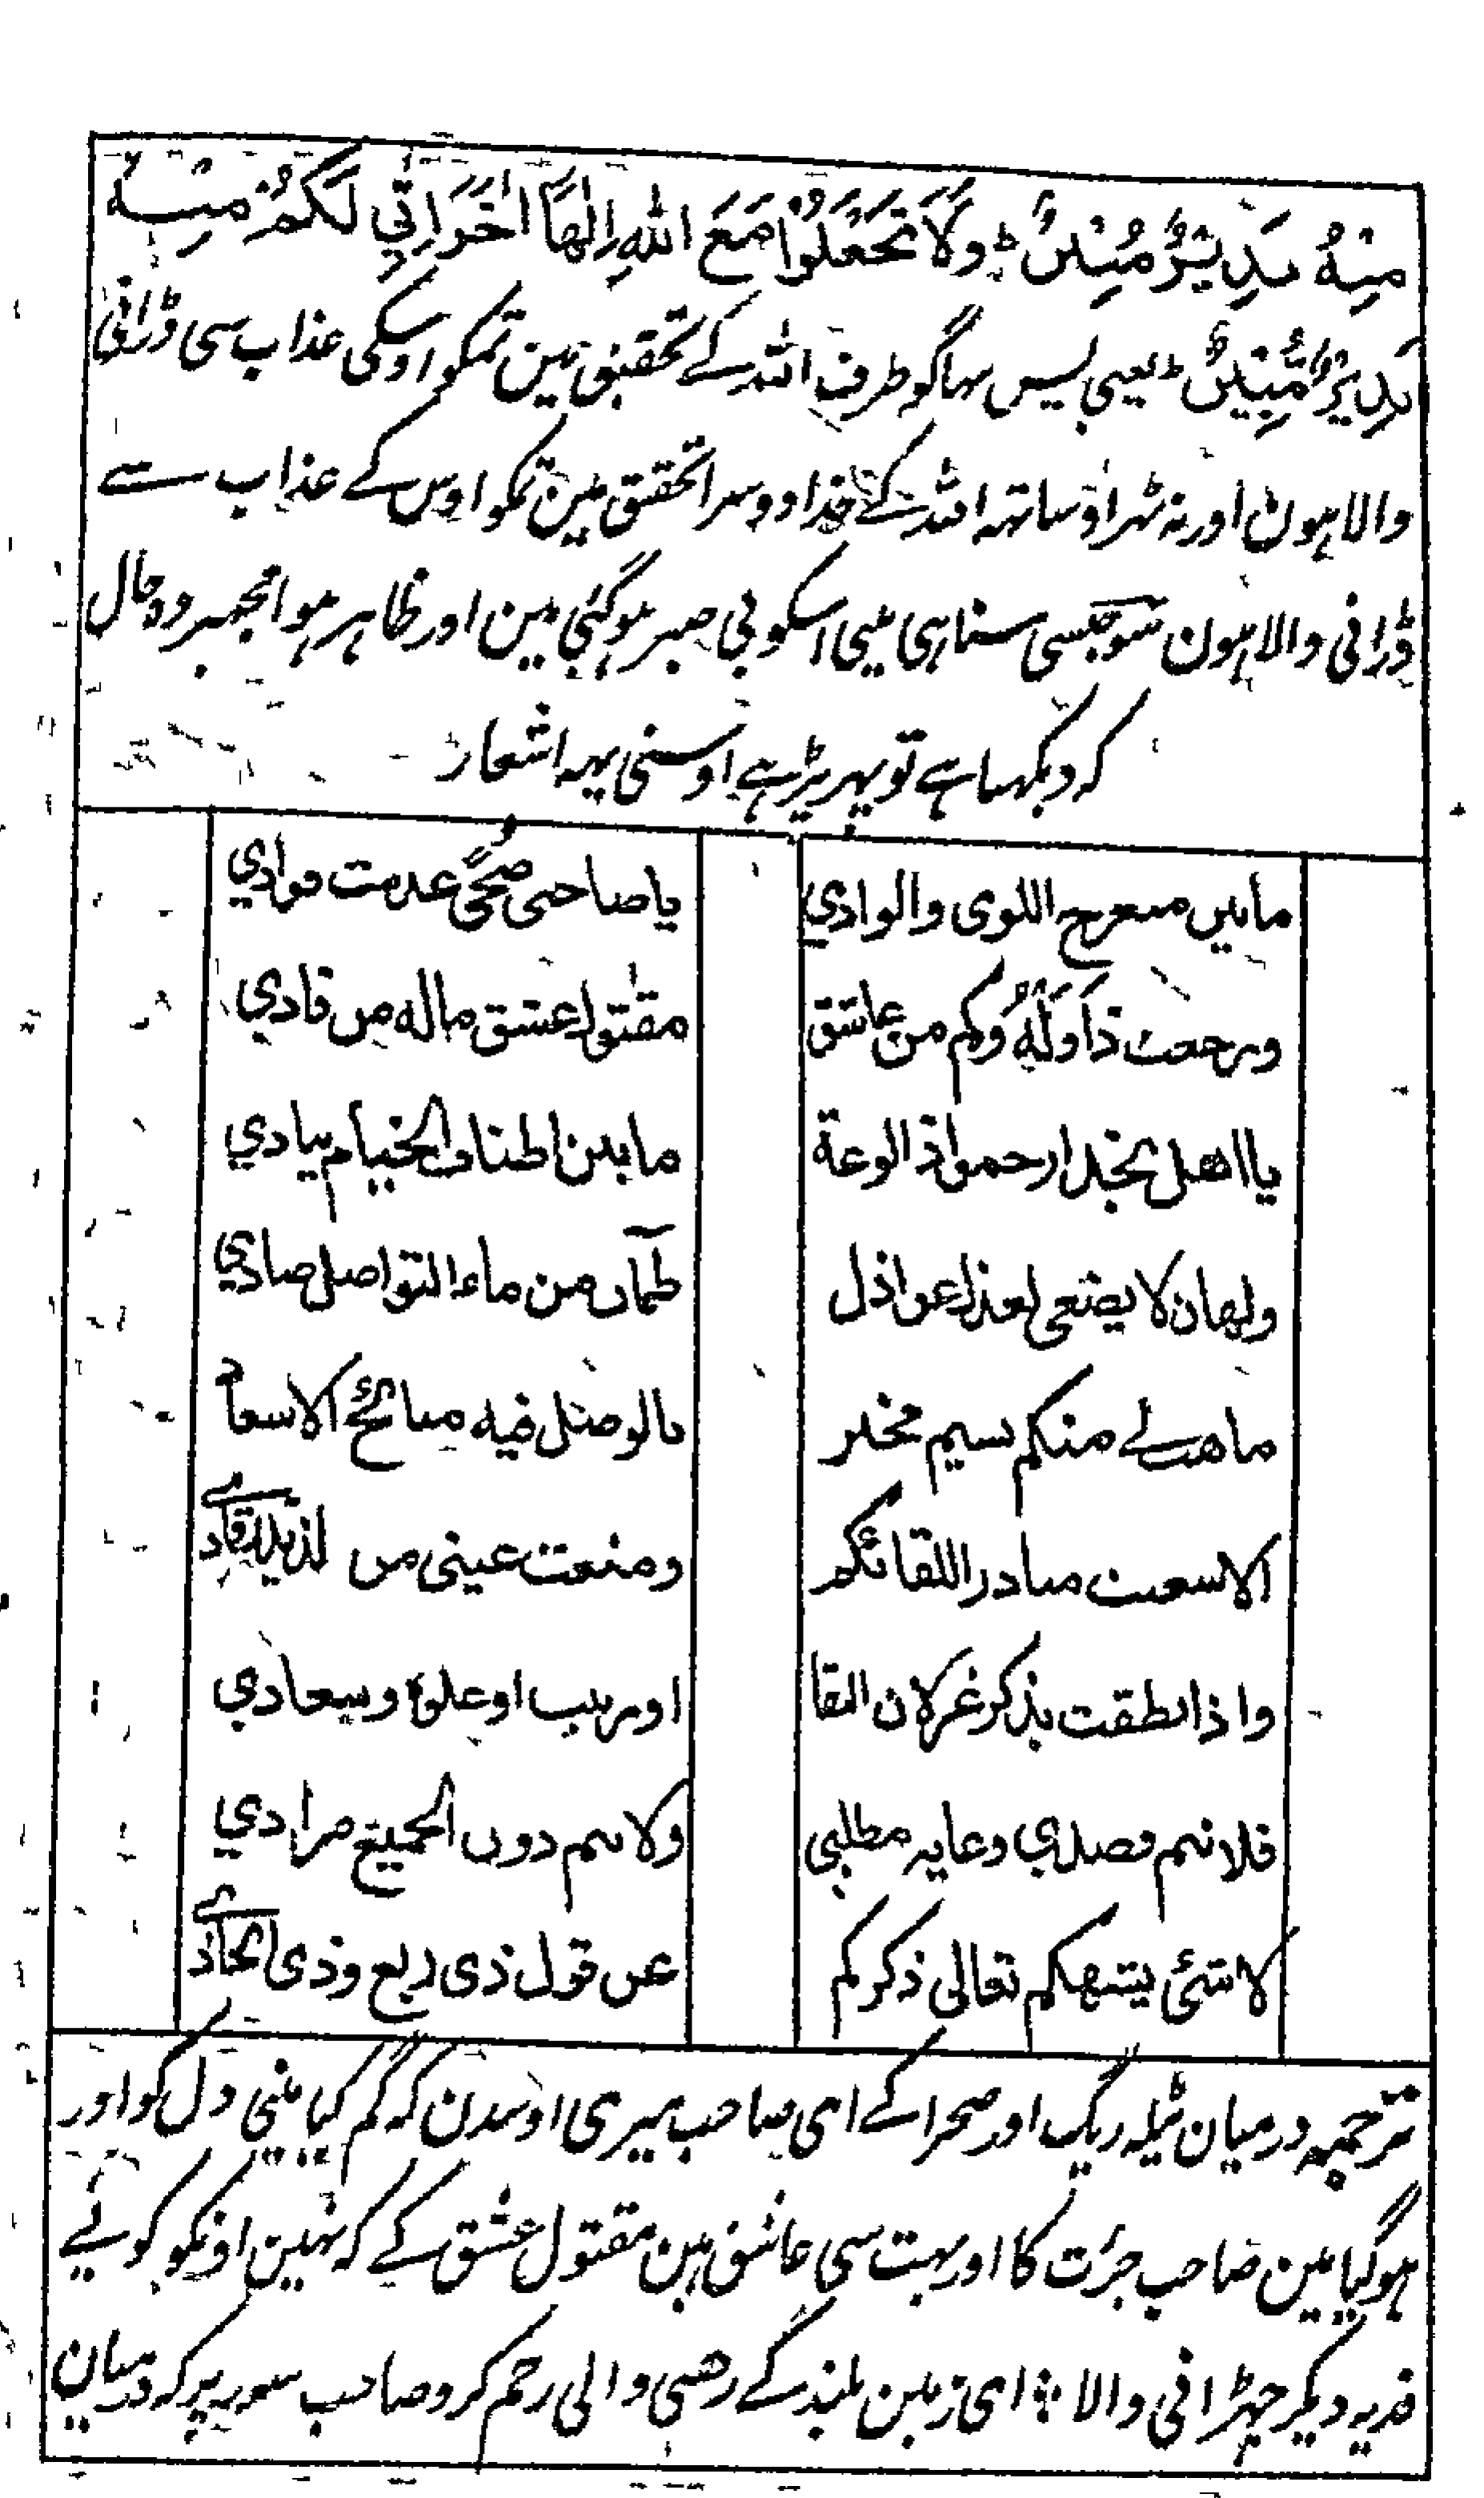 مِنْهُ نَذِيْرٌ مُبِيْنٌ وَلَا تَجْعَلُوْا مَعَ اللهِ اِلٰهًا اٰخَرَ اِنِّي لَكُمْ مِنْهُ
نَذِيْرٌ مُّبِيْنٌ یعنی پس بہاگو طرف اللہ کے تحقیق مین تمکو اوسکی عذاب سی ڈرانی
والا ہون اور نہ ٹہراؤ ساتہہ اللہ کے خدا دوسرا تحقیق مین تمکو اوس کے عذاب سے
ڈرانی والا ہون سو جیسی سنا ہی میی اسکو بی صبر ہوگئی مین اور ظاہر ہوا مجہپر وہ حال
کہ دیکہا ہے تو پہر پڑہے اوسنی یہہ اشعار
مابين منعرج اللوى والوادي يا صاحبى ضحًى عدمت فوادي
ورجعت ذا وَلَهٍ وكم من عاشق مقتول عشق ماله من فادي
يا اهل نجد ارحموا ذا لوعة ما بين اطناب الخيام ينادي
ولهان لا يصغى لعذل عواذل ظمآن من ماء التواصل صادي
ما هب لي منكم نسيم مخبر بالوصل فيه مبائح الاسعاد
الا سعيت مبادرا للقائكم ومنعت عينى من لذيذ رقادي
واذا نطقت بذكر غزلان النقا او زينب او علوة وسعادي
فلانتم قصدي وغاية مطلبي ولانتم دون الجميع مرادي
لا شئ يشبهكم تعالى ذكركم عن قول ذى زيغ وذى الحاد
ترجمہ درمیان ٹیلہ ریگ اور صحرا کے ای صاحب میری اوسدن کہ گم کیا مینی دل کو اور
ہوگیا مین صاحب جرئت کا اور بہت سی عاشق ہین مقتول عشق کے کہ نہین اونکو کوئے
فدیہ دیکر چہڑانی والا ؞ ای زمین بلند کے رہنی والی رحم کرو صاحب سوز پر کہ درمیان